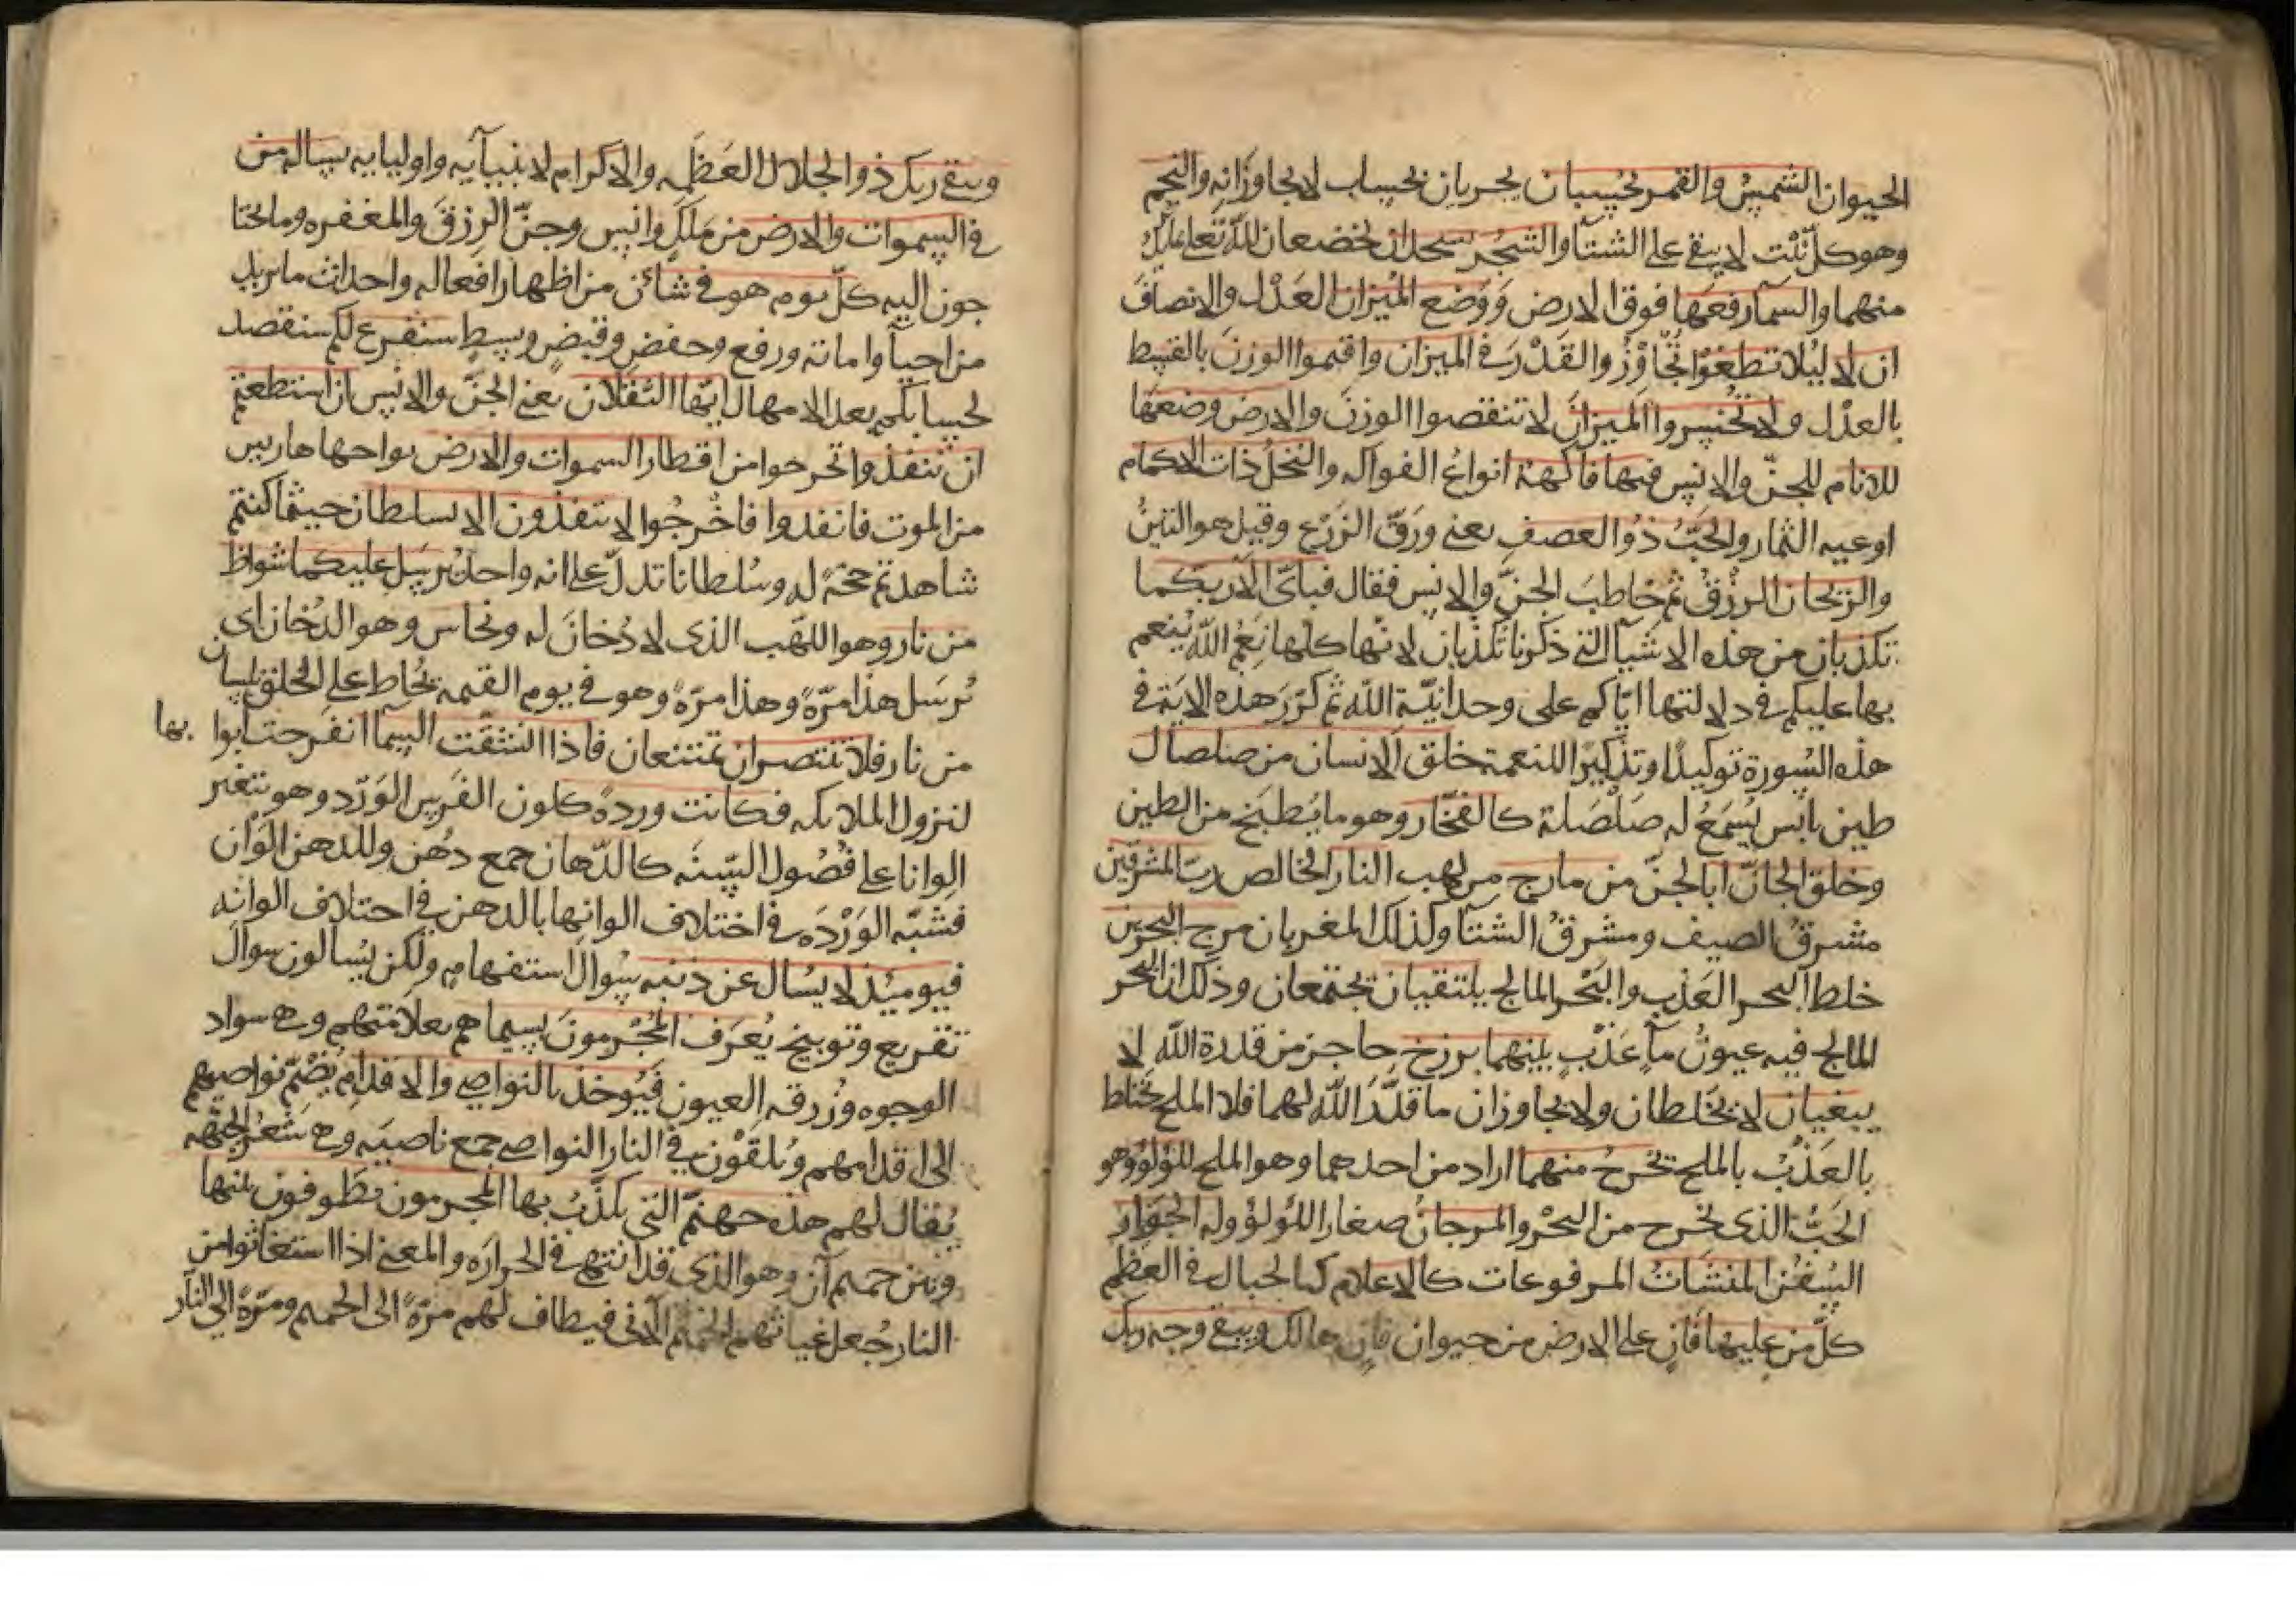 الحيوان الشمس والقمر بحسبان يجريان بحساب لا يجاوزانه والنجم
وهو كل نبت لا يبقى على الشتآ والشجر يسجدان يخضعان لله تعلى
منهما والسمآ رفعها فوق الارض ووضع الميزان العدل والانصاف
ان لا ليلا تطغوا تجاوزوا القدر في الميزان واقيموا الوزن بالقسط
بالعدل ولا تخسروا الميزان لا تنقصوا الوزن والارض وضعها
للانام للجن والانس فيها فاكهة انواع الفواكه والنخل ذات الاكمام
اوعيه الثمار والحب ذو العصف يعنى ورق الزرع وقيل هو التبن
والريحان الرزق ثم خاطب الجن والانس فقال فباى الآ ربكما
تكذبان من هذه الاشيآ التى ذكرنا تكذبان لانها كلها نعم الله ينعم
بها عليكم في دلالتها اياكم على وحدانية الله ثم كرر هذه الاية في
هذه السورة توكيدا وتذكيرا للنعمة خلق الانسان من صلصال
طين يابس يسمع له صلصلة كالفخار وهو ما يطبخ من الطين
وخلق الجان ابا الجن من مارج من لهب النار الخالص رب المشرقين
مشرق الصيف ومشرق الشتآ وكذلك المغربان مرج البحرين
خلط البحر العذب والبحر المالح يلتقيان يجتمعان وذلك ان البحر
المالح فيه عيون مآ عذب بينهما برزخ حاجز من قدرة الله لا
يبغيان لا يختلطان ولا يجاوزان ما قدر الله لهما فلا الملح يختلط
بالعذب بالملح يخرج منهما اراد من احدهما وهو الملح اللؤلؤ وهو
الحب الذى يخرج من البحر والمرجان صغار اللؤلؤ وله الجوار
السفن المنشات المرفوعات كالاعلام كالجبال في العظم
كل من عليها فان على الارض من حيوان فان هالك ويبقى وجه ربك
ويبقى ربك ذو الجلال العظمه والاكرام لانبيآيه واوليايه يساله من
في السموات والارض من ملك وانس وجن الرزق والمغفره وما يحتا
جون اليه كل يوم هو في شائن من اظهار افعاله واحداث ما يريد
من احيآ واماتة ورفع وخفض وقبض وبسط سنفرغ لكم سنقصد
لحسابكم بعد الامهال ايها الثقلان يعنى الجن والانس ان استطعتم
ان تنفذوا تخرجوا من اقطار السموات والارض نواحيها هاربين
من الموت فانفذوا فاخرجوا لا تنفذون الا بسلطان حيثما كنتم
شاهدتم حجة لله وسلطانا تدل على انه واحد يرسل عليكما شواظ
من نار وهو اللهب الذى لا دخان له ونحاس وهو الدخان اى
يرسل هذا مرة وهذا مرة وهو في يوم القيمه يحاط على الخلق بلسان
من نار فلا تنتصران تمتنعان فاذا انشقت السمآ انفرجت ابوابها
لنزول الملايكه فكانت وردة كلون الفرس الورد وهو يتغير
الوانا على فصول السنه كالدهان جمع دهن وللدهن الوان
فشبه الورده في اختلاف الوانها بالدهن في اختلاف الوانه
فيوميذ لا يسال عن ذنبه سوال استفهام ولكن يسالون سوال
تقريع وتوبيخ يعرف المجرمون بسيماهم بعلامتهم وهي سواد
الوجوه وزرقه العيون فيوخذ بالنواصي والاقدام يضم نواصيهم
الى اقدامهم ويلقون في النار النواصي جمع ناصيه وهي شعر الجبهه
يقال لهم هذه جهنم التى يكذب بها المجرمون يطوفون بينها
وبين حميم آن وهو الذى قد انتهى في الحراره والمعنى اذا استغاثوا من
النار جعل غياثهم الحميم الآنى فيطاف لهم مرة الى الحميم ومرة الى النار